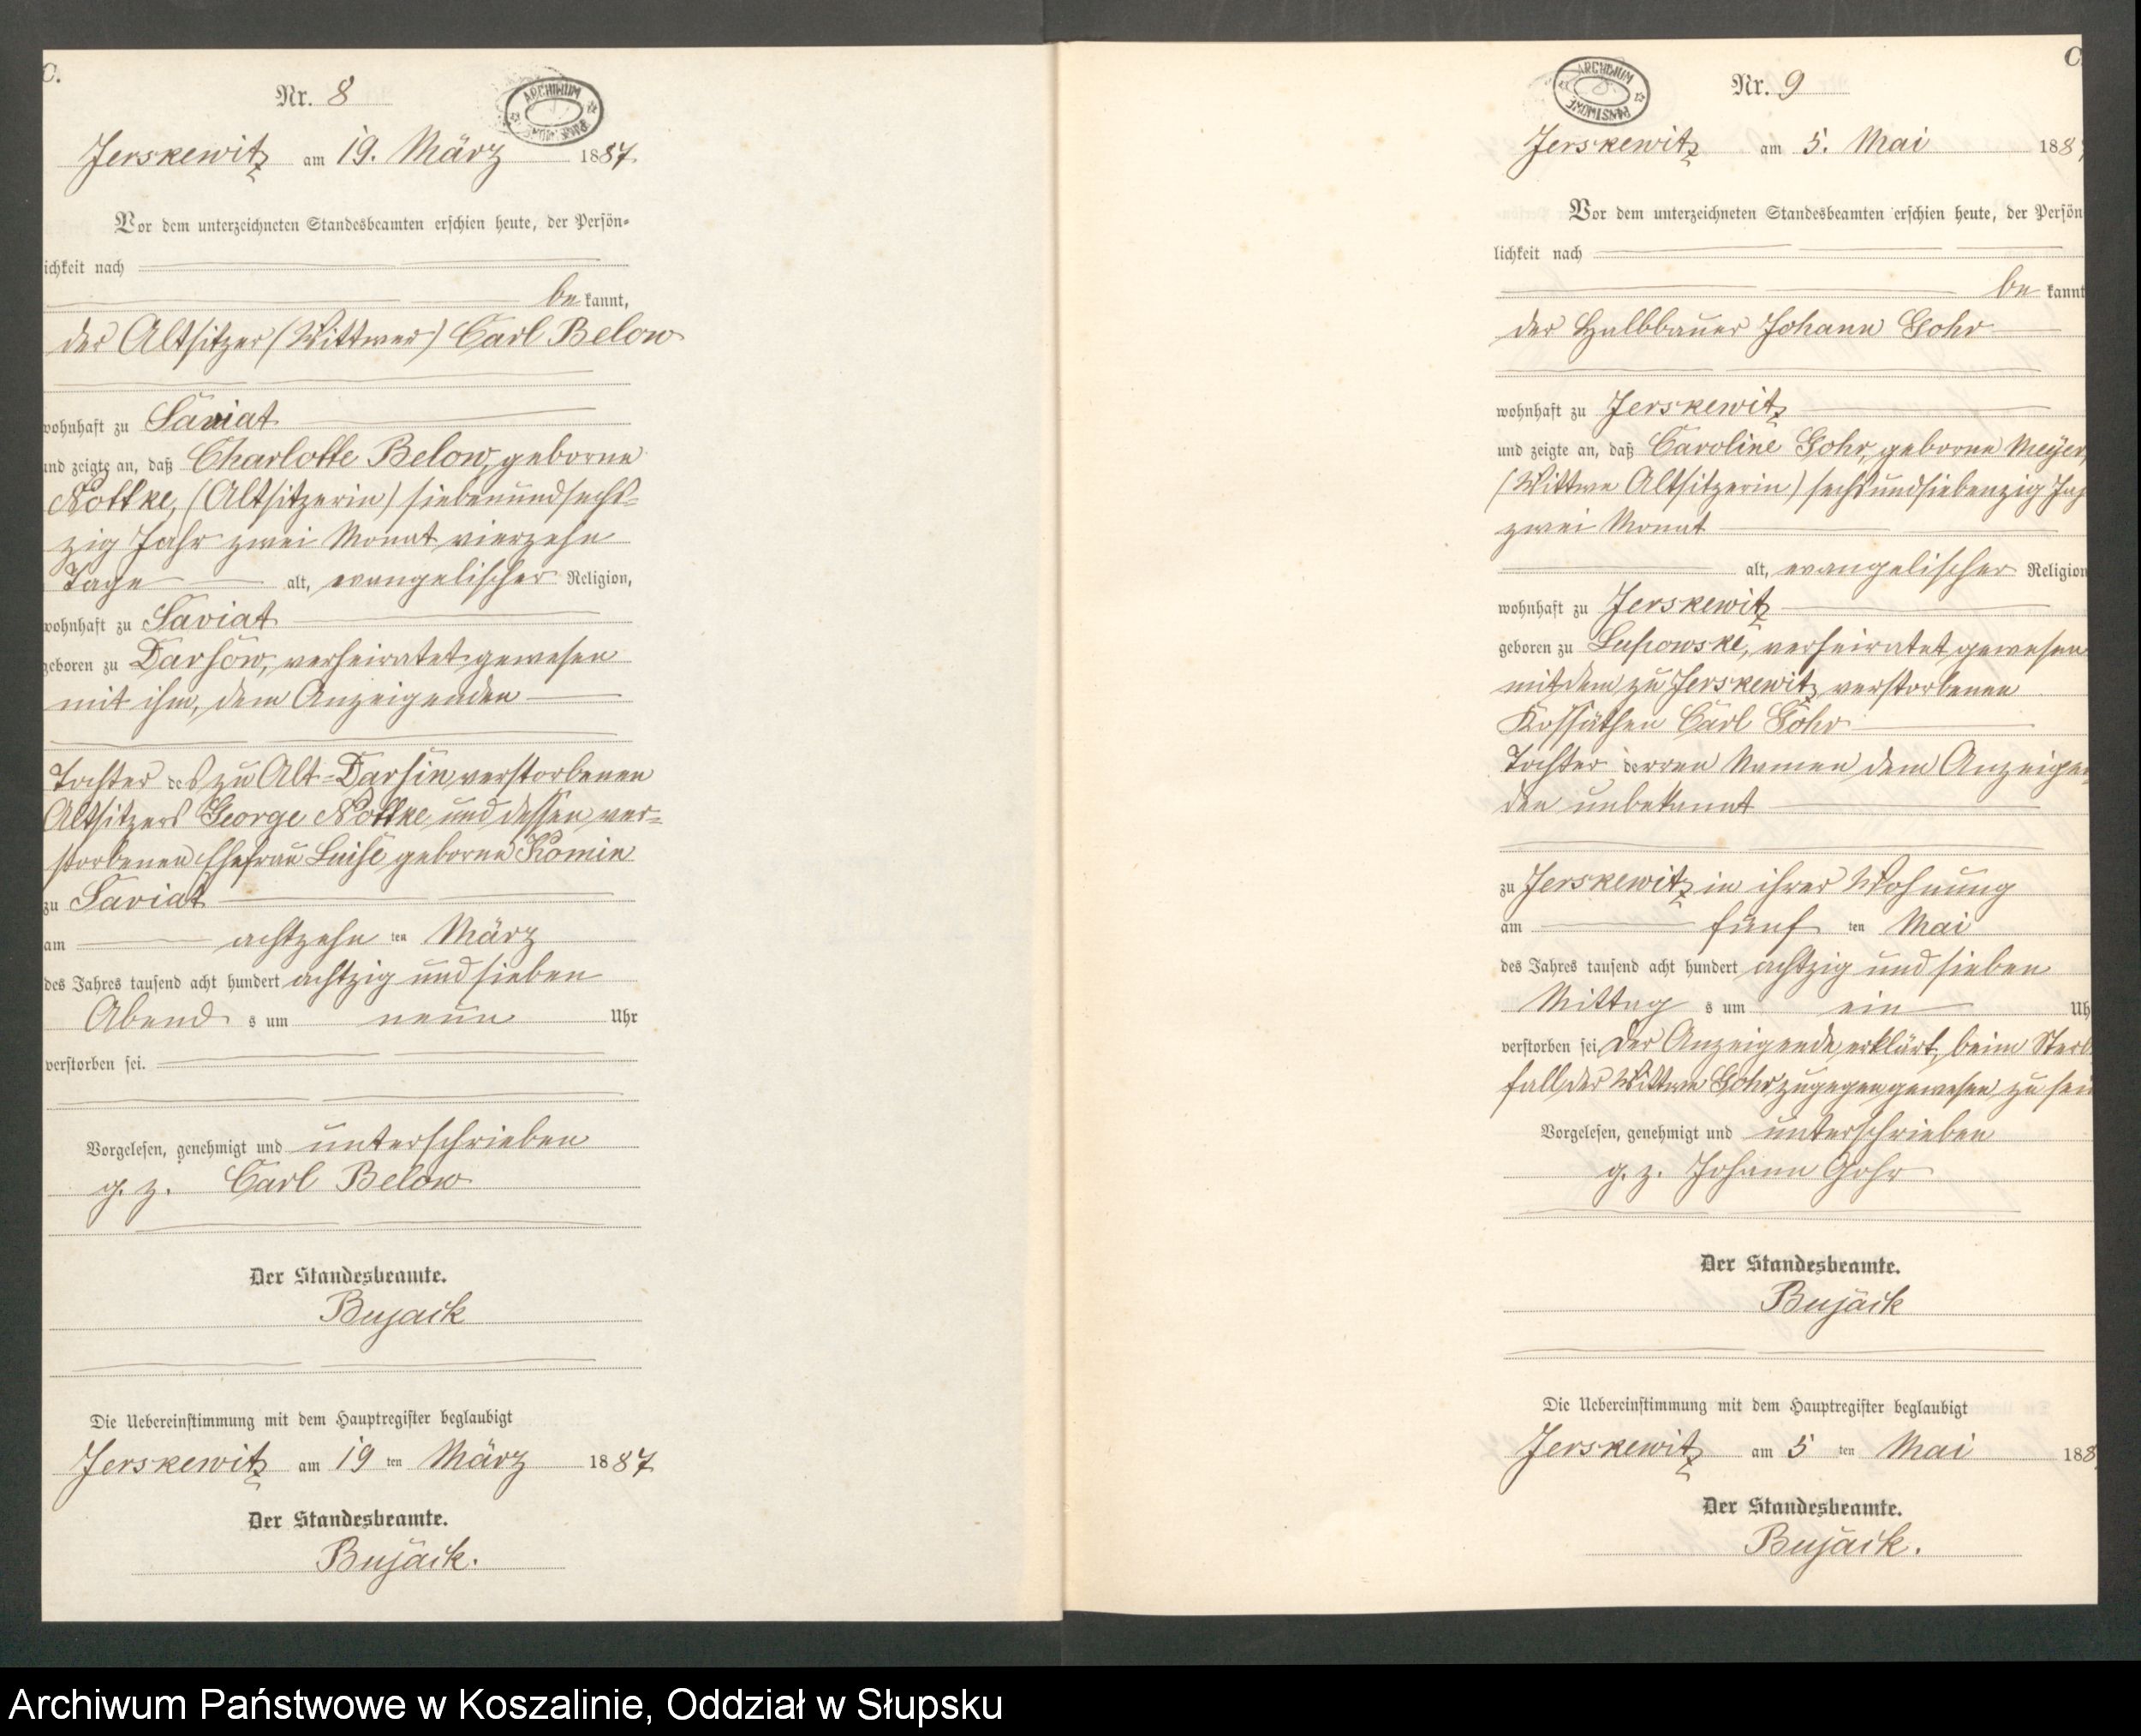 C.
Nr. 8
ARCHIWUM PAŃSTWOWE
Jerskewitz am 19. März 1887.
Vor dem unterzeichneten Standesbeamten erschien heute, der Persön-
ichkeit nach
be kannt,
der Altsitzer (Wittwer) Carl Below
wohnhaft zu Saviat
und zeigte an, daß Charlotte Below, geborne
Nottke, (Altsitzerin) siebenundsechs-
zig Jahr zwei Monat vierzehn
Tage alt, evangelischer Religion,
wohnhaft zu Saviat
geboren zu Darsow, verheiratet gewesen
mit ihm, dem Anzeigenden
Tochter des zu Alt-Darsin verstorbenen
Altsitzers George Nottke und dessen ver-
storbenen Ehefrau Luise geborne Komin
zu Saviat
am achtzehn ten März
des Jahres tausend acht hundert achtzig und sieben
Abend s um neun Uhr
verstorben sei.
Vorgelesen, genehmigt und unterschrieben
g. z. Carl Below
Der Standesbeamte.
Bujack
Die Uebereinstimmung mit dem Hauptregister beglaubigt
Jerskewitz am 19 ten März 1887
Der Standesbeamte.
Bujack.
C
ARCHIWUM PAŃSTWOWE
Nr. 9
Jerskewitz am 5. Mai 188
Vor dem unterzeichneten Standesbeamten erschien heute, der Persön
lichkeit nach
be kannt
der Halbbauer Johann Gohr
wohnhaft zu Jerskewitz
und zeigte an, daß Caroline Gohr, geborne Meyer,
(Wittwe Altsitzerin) sechsundsiebenzig Jah
zwei Monat
alt, evangelischer Religion
wohnhaft zu Jerskewitz
geboren zu Lupowske, verheiratet gewesen
mit dem zu Jerskewitz verstorbenen
Kossäthen Carl Gohr
Tochter derren Namen dem Anzeigen
den unbekannt
zu Jerskewitz in ihrer Wohnung
am fünf ten Mai
des Jahres tausend acht hundert achtzig und sieben
Mittag s um ein Uh
verstorben sei, Der Anzeigende erklärt, beim Sterb
fall der Wittwe Gohr zugegen gewesen zu sein
Vorgelesen, genehmigt und unterschrieben
g. z. Johann Gohr
Der Standesbeamte.
Bujack
Die Uebereinstimmung mit dem Hauptregister beglaubigt
Jerskewitz am 5 ten Mai 188
Der Standesbeamte.
Bujack.
Archiwum Państwowe w Koszalinie, Oddział w Słupsku